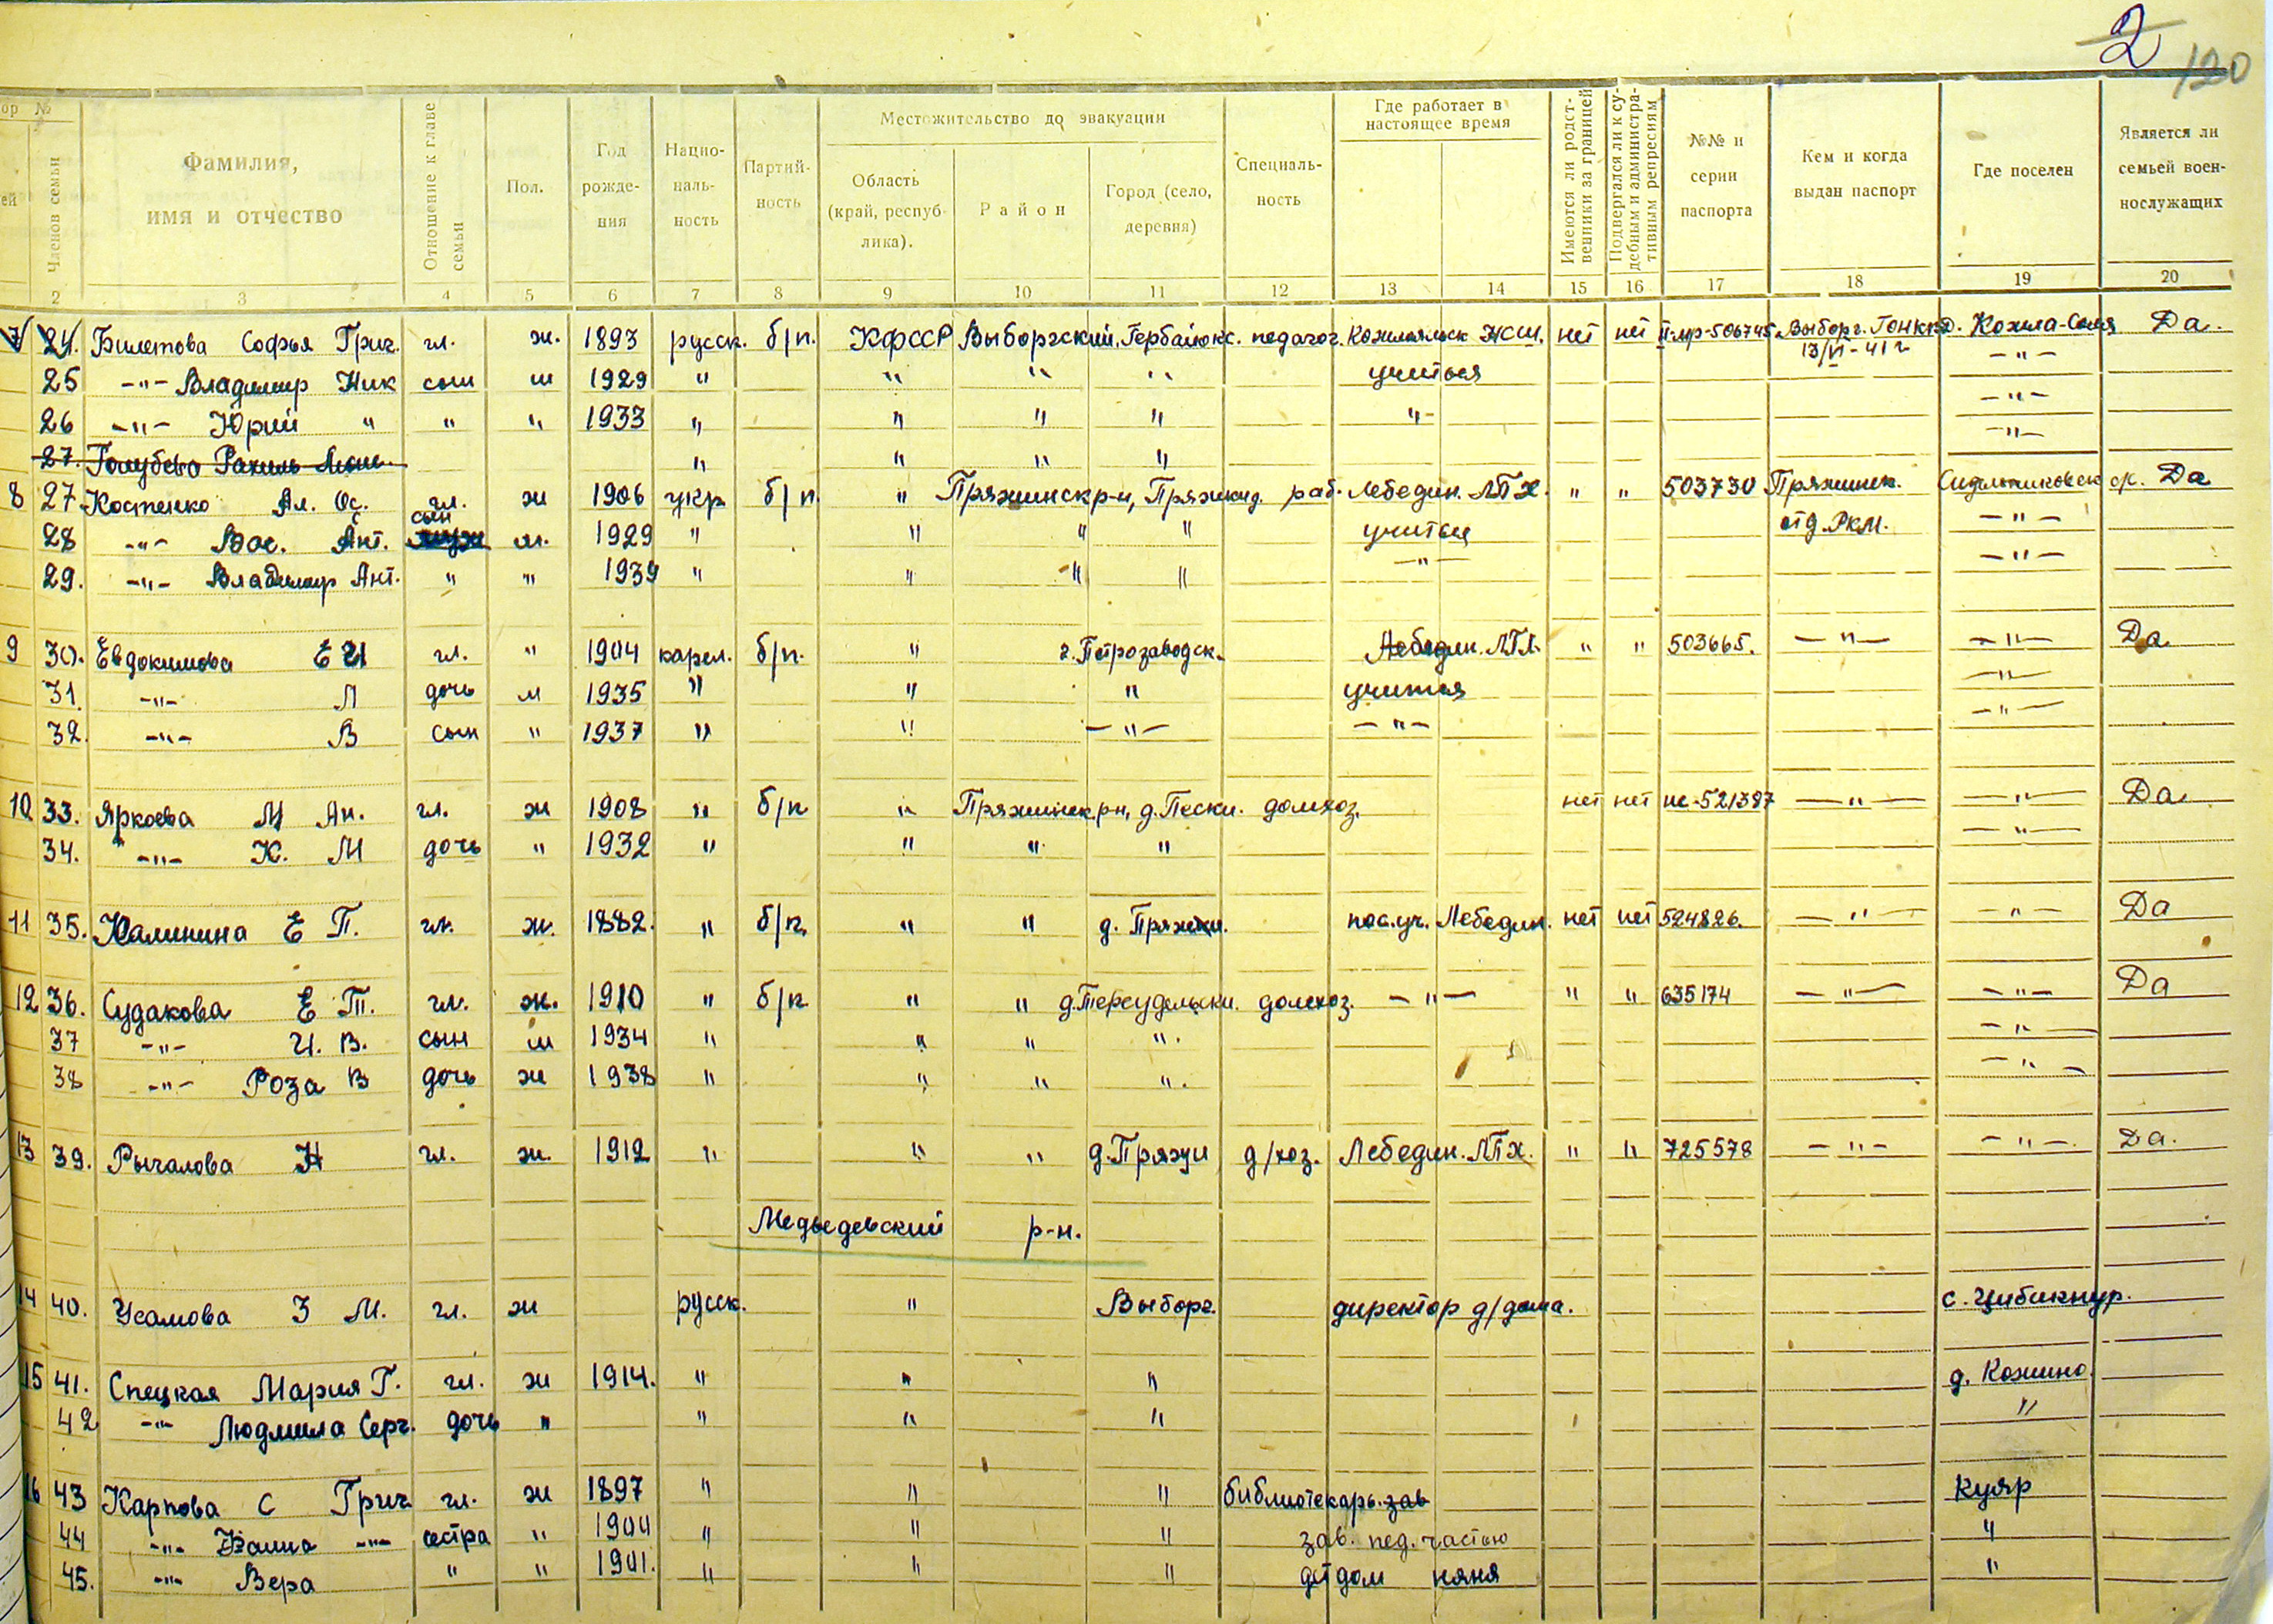 2
120
ор №
ей
Членов семьи
Фамилия,
имя и отчество
Отношение к главе семьи
Пол.
Год рожде- ния
Нацио- наль- ность
Партий- ность
Местожительство до эвакуации
Область (край, респуб- лика).
Район
Город (село, деревня)
Специаль- ность
Где работает в настоящее время
Имеются ли родст- венники за границей
Подвергался ли к су- дебным и администра- тивным репрессиям
№№ и серии паспорта
Кем и когда выдан паспорт
Где поселен
Является ли семьей воен- нослужащих
2 3 4 5 6 7 8 9 10 11 12 13 14 15 16 17 18 19 20
7 24. Билетова Софья Григ. гл. ж. 1893 русск. б/п. КФССР Выборгский, педагог. НСШ. нет нет 506745 Выборг. д. Кожла-Сола Да.
13/VI-41г -"-
25 -"- Владимир Ник сын м 1929 " " " " учиться -"-
26 -"- Юрий " " " 1933 " " " " "- -"-
27. Голубева Рахиль " " " "
8 27 Костенко Ал. Ос. гл. ж 1906 укр б/п. " Пряжинск р-н, раб. Лебедин. ЛПХ. " " 503730 Пряжинск. Да
28 -"- Вас. Ант. сын м. 1929 " " " " учиться отд. РКМ. -"-
29. -"- Владимир Ант. " " 1939 " " " " -"- -"-
9 30. Евдокимова Е И гл. " 1904 карел. б/п. " г. Петрозаводск. Лебедин. ЛПХ. " " 503665. -"- -"- Да
31. -"- Л дочь м 1935 " " " учится -"-
32. -"- В сын " 1937 " " -"- -"- -"-
10 33. Яркоева М Ан. гл. ж 1908 " б/п " Пряжинск. рн, д. Пески. домхоз. нет нет 521387 -"- -"- Да.
34. -"- К. М дочь " 1932 " " " " -"-
11 35. Калинина Е П. гл. ж. 1882. " б/п. " " д. Пряжи. Лебедин. нет нет 524826. -"- -"- Да
12 36. Судакова Е Т. гл. ж. 1910 " б/п " " домхоз. -"- " " 635174 -"- -"- Да
37 -"- И. В. сын м 1934 " " " ". -"-
38 -"- Роза В дочь ж 1938 " " " ". -"-
13 39. Рычалова Н гл. ж. 1912 " " " д. Пряжи д/хоз. Лебедин. ЛПХ. " " 725578 -"- -"- Да.
Медведевский р-н.
14 40. Усамова З М. гл. ж русск. " Выборг. директор д/дома. с. Цибикнур.
15 41. Спецкая Мария Г. гл. ж 1914. " " " д. Кожино.
42 -"- Людмила Серг. дочь " " " " "
16 43 Карпова С Григ. гл. ж 1897 " " " библиотекарь. зав Куяр
44 -"- -"- сестра " " " " зав. пед. частью "
45. -"- Вера " " 1901. " " " дет дом няня "